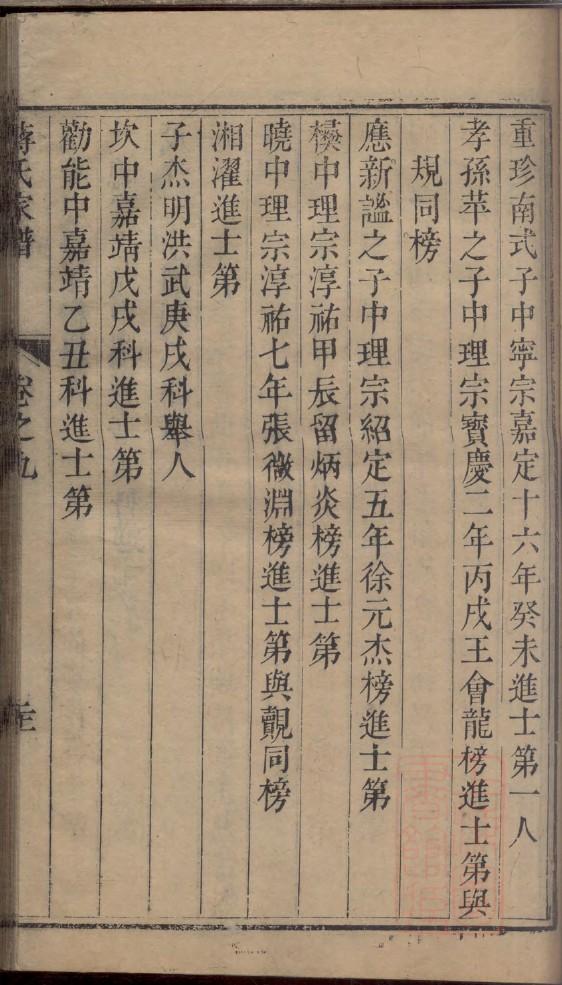 重珍南式子中寧宗嘉定十六年癸未進士第一人
孝孫苹之子中理宗寶慶二年丙戌王會龍榜進士第與
規同榜
應新謐之子中理宗紹定五年徐元杰榜進士第
櫕中理宗淳祐甲辰留炳炎榜進士第
曉中理宗淳祐七年張徽淵榜進士第與覿同榜
湘濯進士第
子杰明洪武庚戌科舉人
坎中嘉靖戊戌科進士第
勸能中嘉靖乙丑科進士第
蔣氏家譜 卷之九